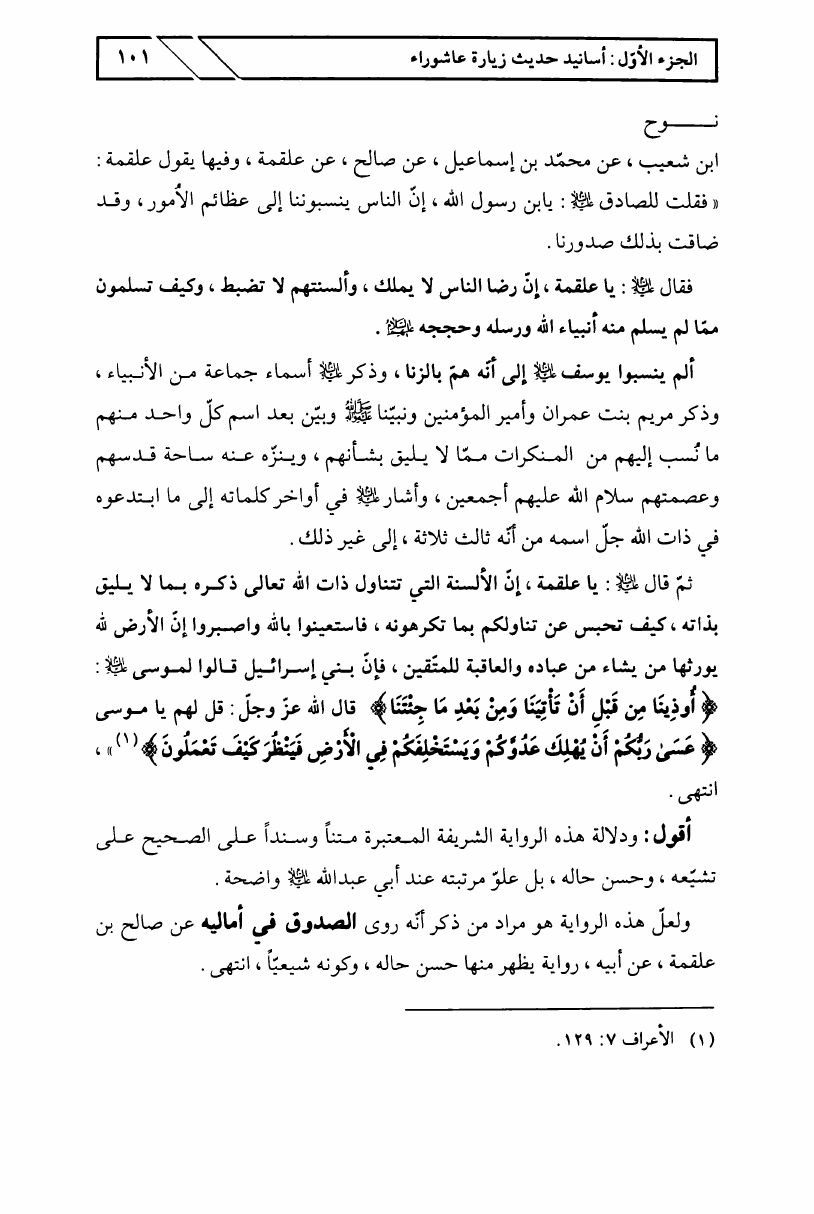 الجزء الأوّل : أسانيد حديث زيارة عاشوراء ١٠١
نـــــوح
ابن شعيب ، عن محمّد بن إسماعيل ، عن صالح ، عن علقمة ، وفيها يقول علقمة :
« فقلت للصادق عليه السلام : يابن رسول الله ، إنّ الناس ينسبوننا إلى عظائم الأُمور ، وقـد
ضاقت بذلك صدورنا .
فقال عليه السلام : يا علقمة ، إنّ رضا الناس لا يملك ، وألسنتهم لا تضبط ، وكيف تسلمون
ممّا لم يسلم منه أنبياء الله ورسله وحججه عليهم السلام .
ألم ينسبوا يوسف عليه السلام إلى أنّه همّ بالزنا ، وذكر عليه السلام أسماء جماعة مـن الأنـبياء ،
وذكر مريم بنت عمران وأمير المؤمنين ونبيّنا ﷺ وبيّن بعد اسم كلّ واحـد مـنهم
ما نُسب إليهم من المـنكرات مـمّا لا يـليق بشـأنهم ، ويـنزّه عـنه سـاحة قـدسهم
وعصمتهم سلام الله عليهم أجمعين ، وأشار عليه السلام في أواخر كلماته إلى ما ابـتدعوه
في ذات الله جلّ اسمه من أنّه ثالث ثلاثة ، إلى غير ذلك .
ثمّ قال عليه السلام : يا علقمة ، إنّ الألسنة التي تتناول ذات الله تعالى ذكـره بـما لا يـليق
بذاته ، كيف تحبس عن تناولكم بما تكرهونه ، فاستعينوا بالله واصـبروا إنّ الأرض لله
يورثها من يشاء من عباده والعاقبة للمتّقين ، فإنّ بـني إسـرائـيل قـالوا لمـوسى عليه السلام :
﴿ أُوذِينَا مِن قَبْلِ أَنْ تَأْتِيَنَا وَمِنْ بَعْدِ مَا جِئْتَنَا ﴾ قال الله عزّ وجلّ : قل لهم يا مـوسى
﴿ عَسَىٰ رَبُّكُمْ أَنْ يُهْلِكَ عَدُوَّكُمْ وَيَسْتَخْلِفَكُمْ فِي الْأَرْضِ فَيَنْظُرَ كَيْفَ تَعْمَلُونَ ﴾ (١) » ،
انتهى .
أقول : ودلالة هذه الرواية الشريفة المـعتبرة مـتناً وسـنداً عـلى الصـحيح عـلى
تشيّعه ، وحسن حاله ، بل علوّ مرتبته عند أبي عبدالله عليه السلام واضحة .
ولعلّ هذه الرواية هو مراد من ذكر أنّه روى الصدوق في أماليه عن صالح بن
علقمة ، عن أبيه ، رواية يظهر منها حسن حاله ، وكونه شيعيّاً ، انتهى .
(١) الأعراف ٧: ١٢٩ .